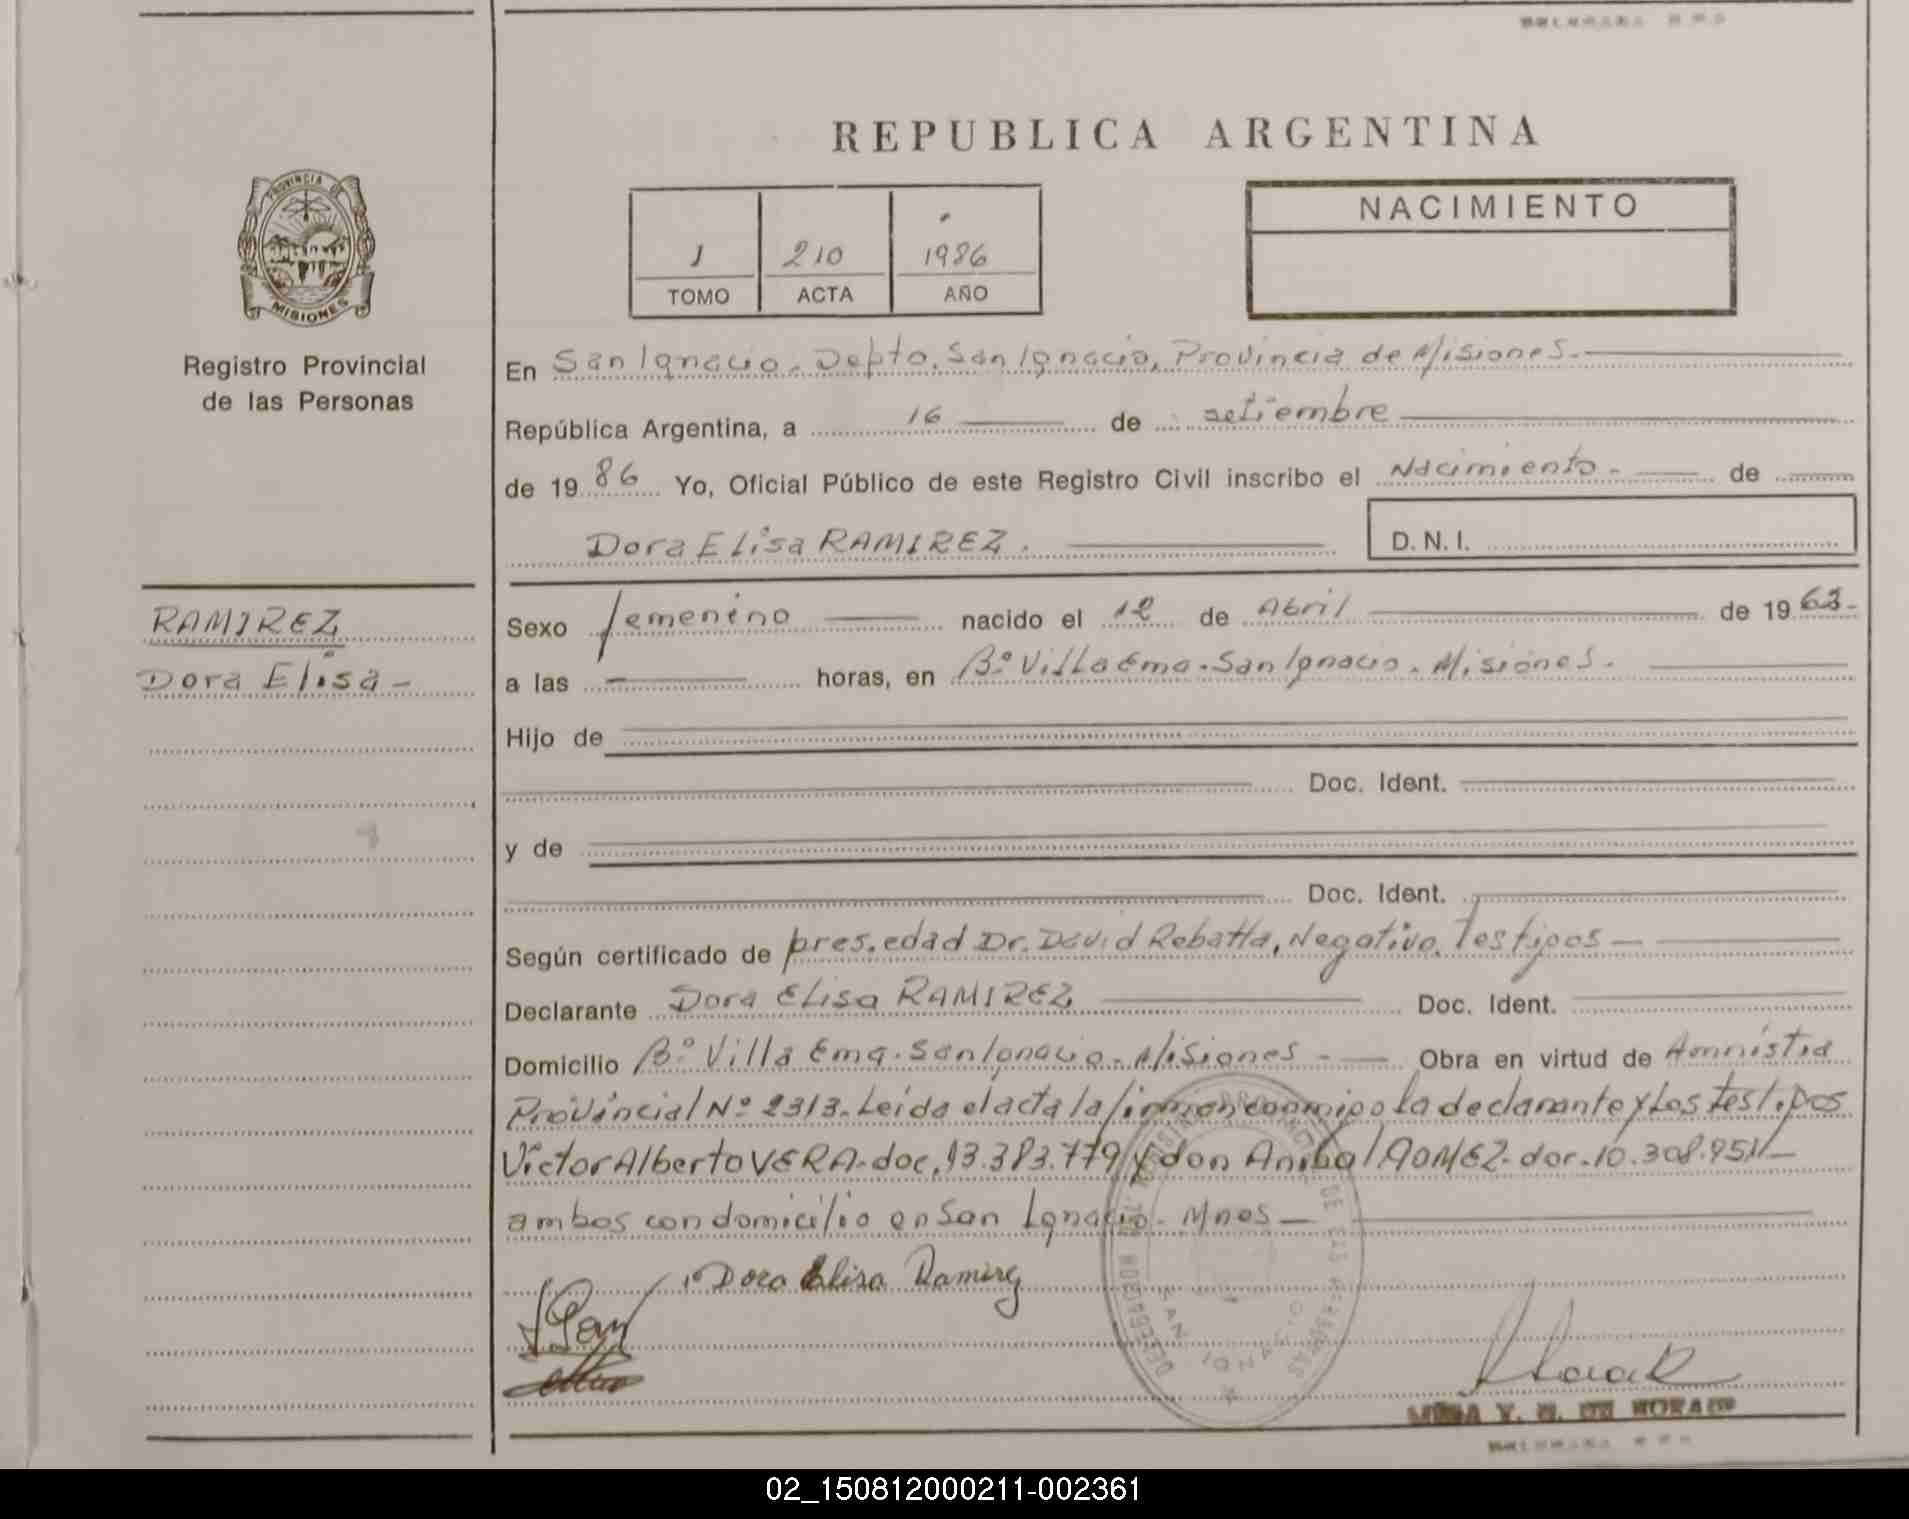 REPUBLICA ARGENTINA
PROVINCIA DE
MISIONES
Registro Provincial
de las Personas
1 210 1986
TOMO ACTA AÑO
NACIMIENTO
En San Ignacio. Depto. San Ignacio, Provincia de Misiones.
República Argentina, a 16 de setiembre
de 1986 Yo, Oficial Público de este Registro Civil inscribo el Nacimiento. de
Dora Elisa RAMIREZ.
D. N. I.
RAMIREZ
Dora Elisa
Sexo femenino nacido el 12 de Abril de 1963
a las horas, en Bº Villa Ema. San Ignacio. Misiones.
Hijo de
Doc. Ident.
y de
Doc. Ident.
Según certificado de pres. edad Dr. David Rebatta, Negativo, Testigos
Declarante Dora Elisa RAMIREZ Doc. Ident.
Domicilio Bº Villa Ema. San Ignacio. Misiones Obra en virtud de Amnistia
Provincial Nº 2313. Leida el acta la firman conmigo la declarante y los testigos
Victor Alberto VERA. doc. 13.383.779 y don Anibal GOMEZ. doc. 10.308.951
ambos con domicilio en San Ignacio. Mnes
Dora Elisa Ramirez
SAN IGNACIO
02_150812000211-002361